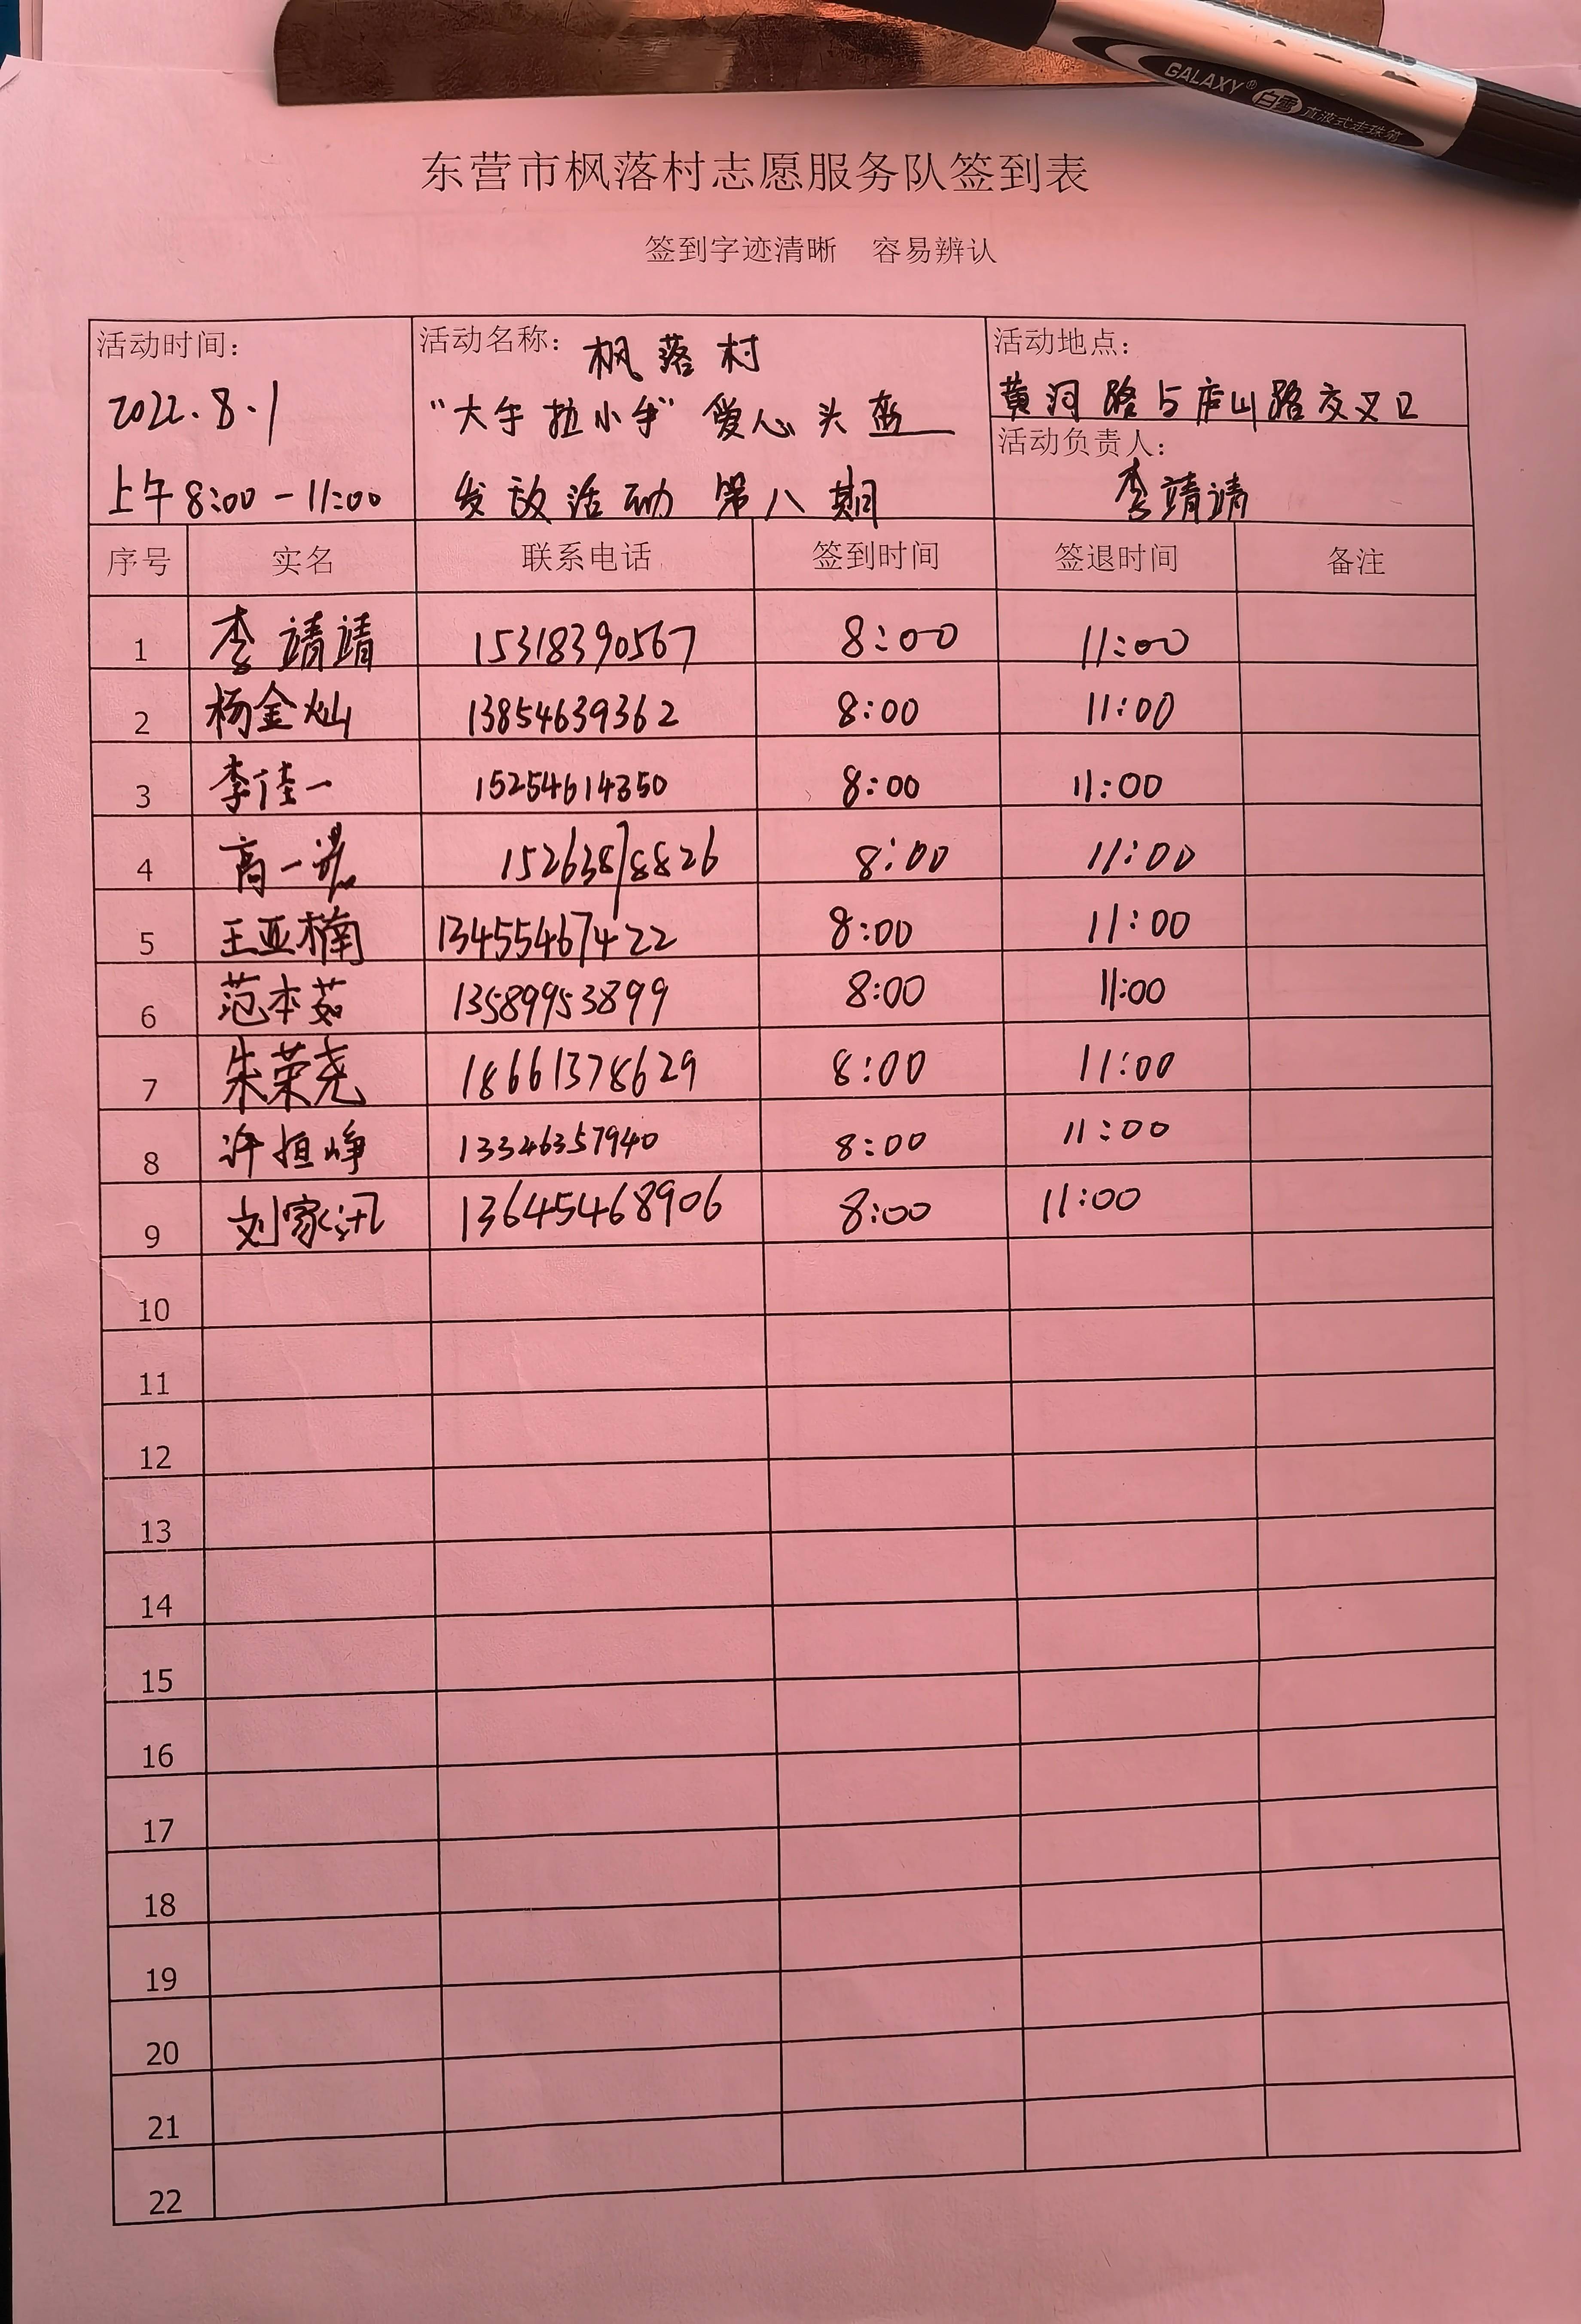 GALAXY® 白雪 直液式走珠笔
东营市枫落村志愿服务队签到表
签到字迹清晰 容易辨认
活动时间:
2022.8.1
上午8:00-11:00
活动名称: 枫落村
“大手拉小手”爱心头盔
发放活动 第八期
活动地点:
黄河路与庐山路交叉口
活动负责人:
李靖靖
序号 实名 联系电话 签到时间 签退时间 备注
1 李靖靖 15318390567 8:00 11:00
2 杨金灿 13854639362 8:00 11:00
3 李佳一 15254614350 8:00 11:00
4 高一 15263878826 8:00 11:00
5 王亚楠 13455467422 8:00 11:00
6 范本茹 13589953899 8:00 11:00
7 朱荣尧 18661378629 8:00 11:00
8 许恒峥 13346357940 8:00 11:00
9 刘家汛 13645468906 8:00 11:00
10
11
12
13
14
15
16
17
18
19
20
21
22